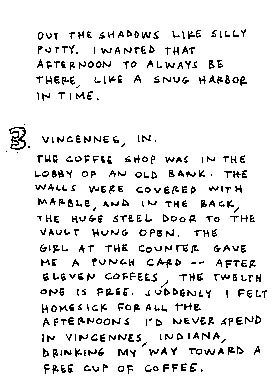 OUT THE SHADOWS LIKE SILLY
PUTTY. I WANTED THAT
AFTERNOON TO ALWAYS BE
THERE, LIKE A SNUG HARBOR
IN TIME.
3. VINCENNES, IN.
THE COFFEE SHOP WAS IN THE
LOBBY OF AN OLD BANK. THE
WALLS WERE COVERED WITH
MARBLE, AND IN THE BACK,
THE HUGE STEEL DOOR TO THE
VAULT HUNG OPEN. THE
GIRL AT THE COUNTER GAVE
ME A PUNCH CARD -- AFTER
ELEVEN COFFEES, THE TWELTH
ONE IS FREE. SUDDENLY I FELT
HOMESICK FOR ALL THE
AFTERNOONS I'D NEVER SPEND
IN VINCENNES, INDIANA,
DRINKING MY WAY TOWARD A
FREE CUP OF COFFEE.